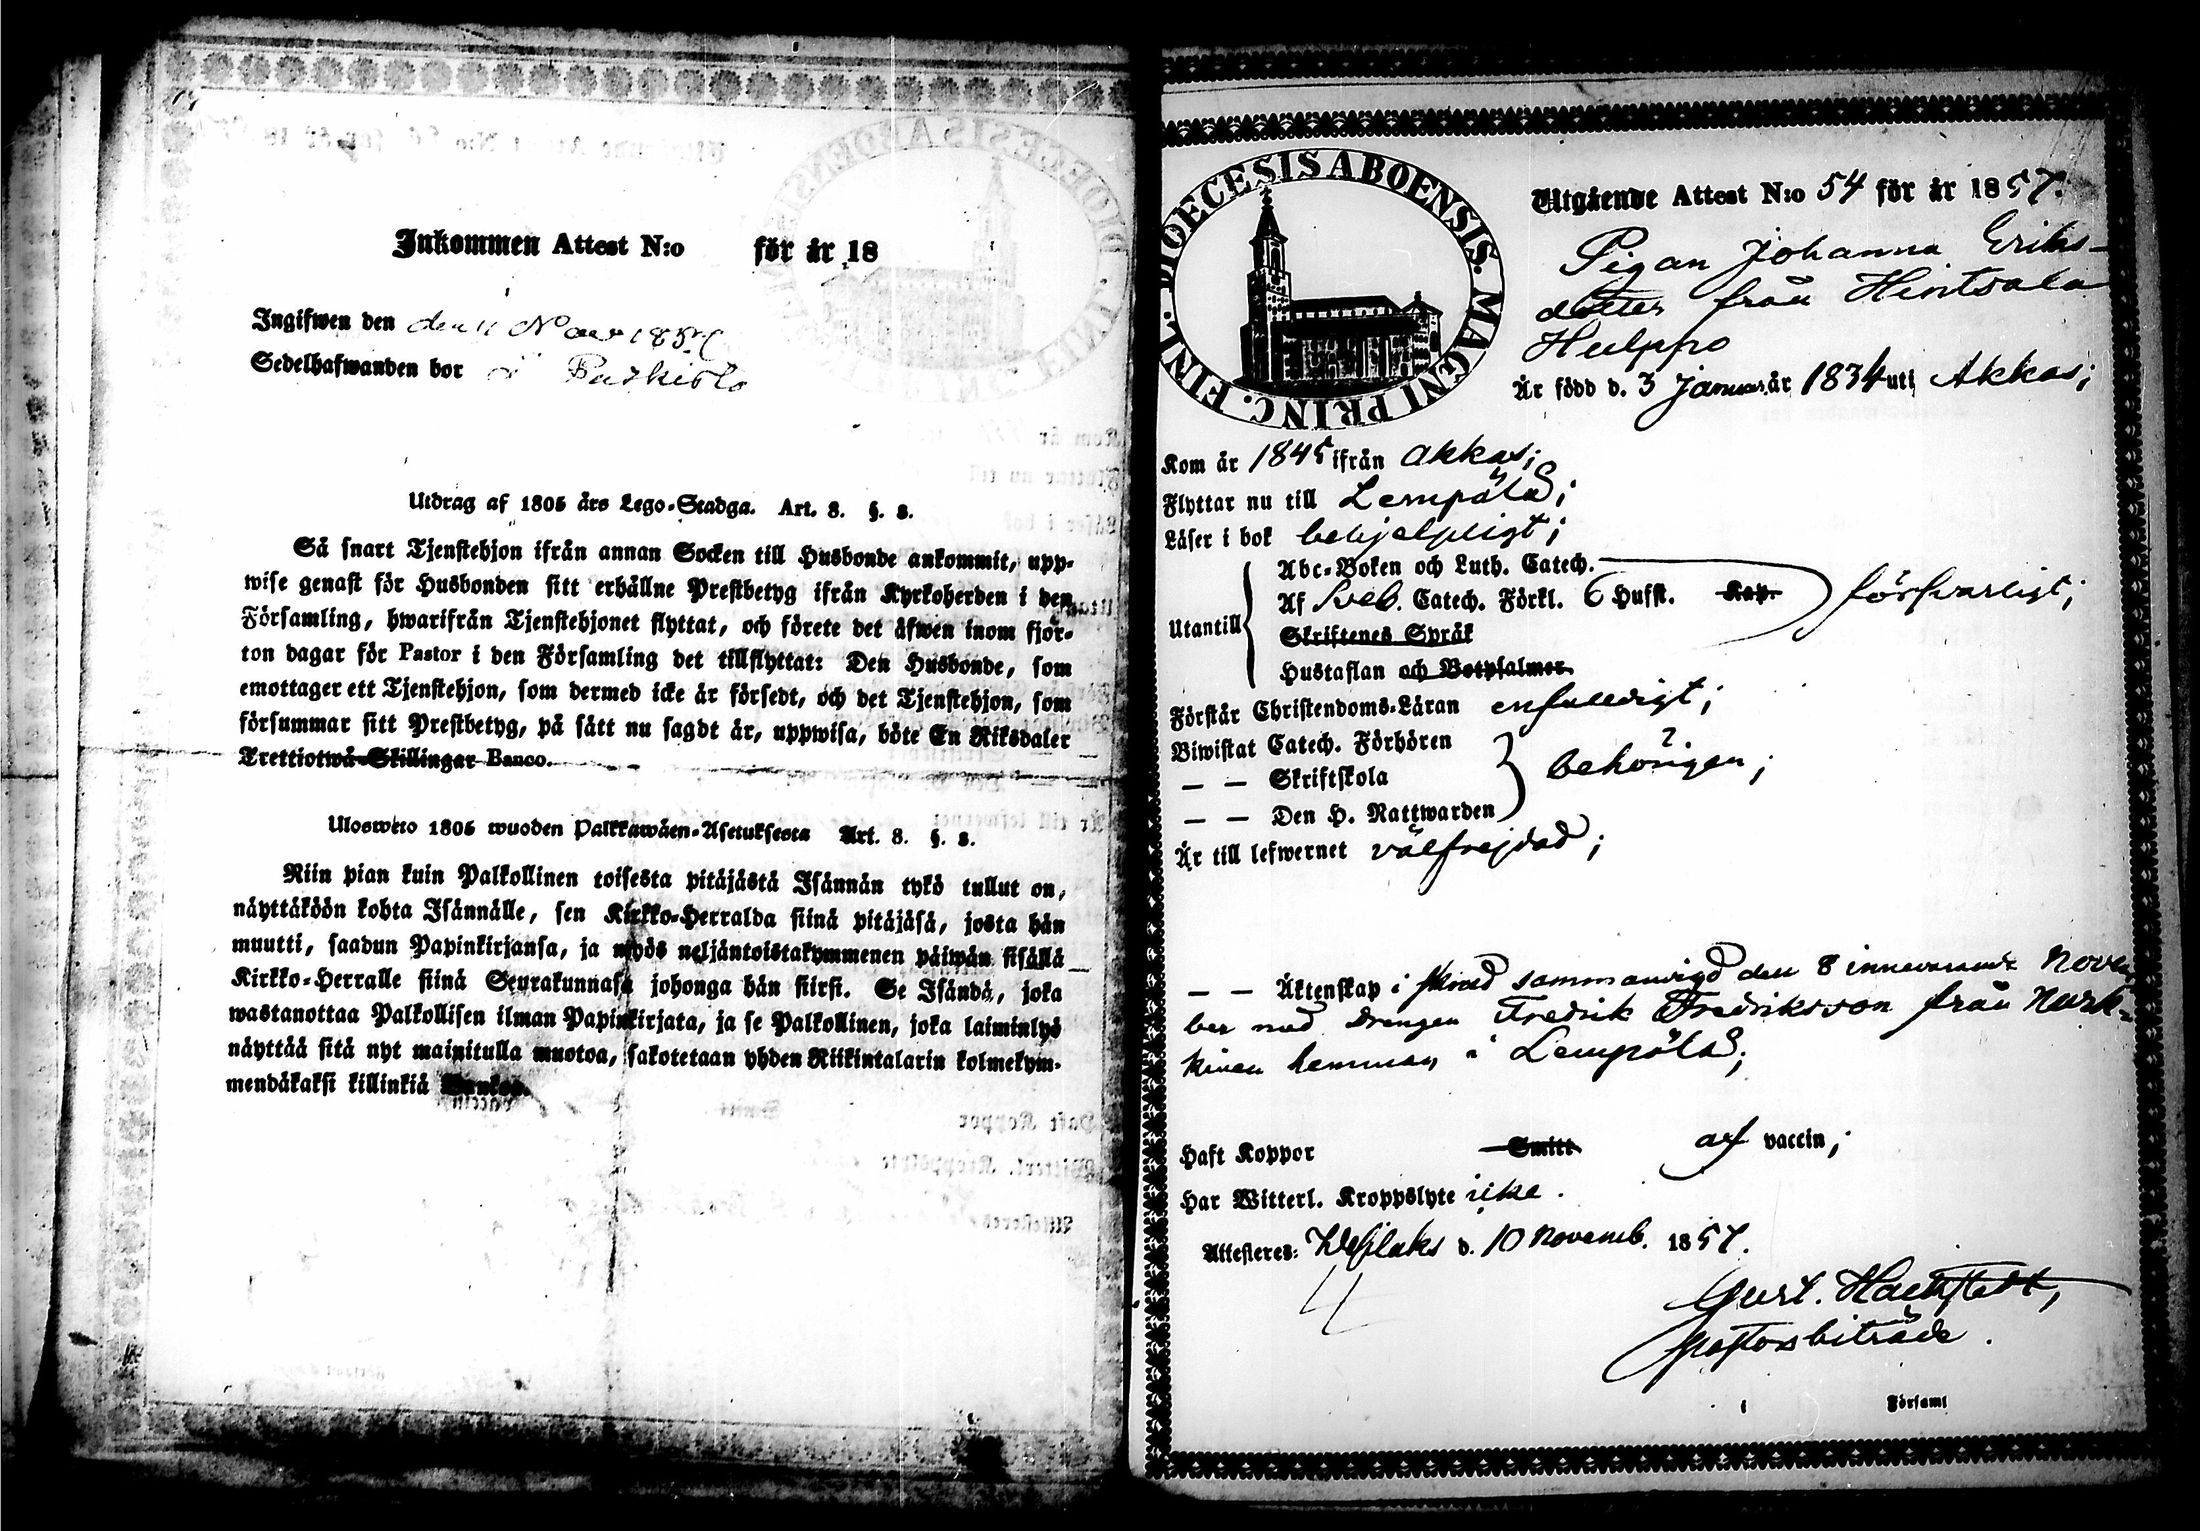 Inkommen Attest N:o för år 18
Ingifwen den den 11 Nov 1857
Sedelhafwanden bor i
Utdrag af 1805 års Lego-Stadga. Art. 8. §. 8.
Så snart Tjenstehjon ifrån annan Socken till Husbonde ankommit, upp-
wise genast för Husbonden sitt erhållne Prestbetyg ifrån Kyrkoherden i den
Församling, hwarifrån Tjenstehjonet flyttat, och förete det äfwen inom fjor-
ton dagar för Pastor i den Församling det tillflyttat: Den Husbonde, som
emottager ett Tjenstehjon, som dermed icke är försedt, och det Tjenstehjon, som
försummar sitt Prestbetyg, på sätt nu sagdt är, uppwisa, böte En Riksdaler
Trettiotwå Skillingar Banco.
Ulosweto 1805 wuoden Palkkawäen-Asetuksesta Art. 8. §. 8.
Niin pian kuin Palkollinen toisesta pitäjästä Isännän tykö tullut on,
näyttäköön kohta Isännälle, sen Kirkko-Herralda siinä pitäjäsä, josta hän
muutti, saadun Papinkirjansa, ja myös neljäntoistakymmenen päiwän sisällä
Kirkko-Herralle siinä Seurakunnasa johonga hän siirsi. Se Isändä, joka
wastanottaa Palkollisen ilman Papinkirjata, ja se Palkollinen, joka laiminlyö
näyttää sitä nyt mainitulla muotoa, sakotetaan yhden Riikintalarin kolmekym-
mendäkaksi killinkiä Bankos.
DIOECESIS ABOENSIS. MAGNI PRINC. FINL.
Utgående Attest N:o 54 för år 1857.
Pigan Johanna Eriks-
dotter från Hintsala
Hulppo
Är född d. 3 Januar. år 1834 uti Akkas;
Kom år 1845 ifrån Akkas;
Flyttar nu till Lempälä;
Läser i bok behjelpligt;
Abc-Boken och Luth. Catech.
Af Sveb. Catech. Förkl. 6 Hufst. Kap. försvarligt;
Utantill
Skriftenes Språk
Hustaflan och Botpsalmer.
Förstår Christendoms-Läran enfaldigt;
Biwistat Catech. Förhören
— — Skriftskola behörigen;
— — Den H. Nattwarden
Är till lefwernet välfrejdad;
— — Äktenskap i sammanvigd den 8 innevarande Novem
ber med Drengen Fredrik Fredriksson från Nurk-
kinen hemman i Lempälä;
Haft Koppor Smitt af vaccin;
Har Witterl. Kroppslyte icke.
Attesteres: Wesilaks d. 10 Novemb. 1857.
4
Gust.
pastorsbiträde.
Församl